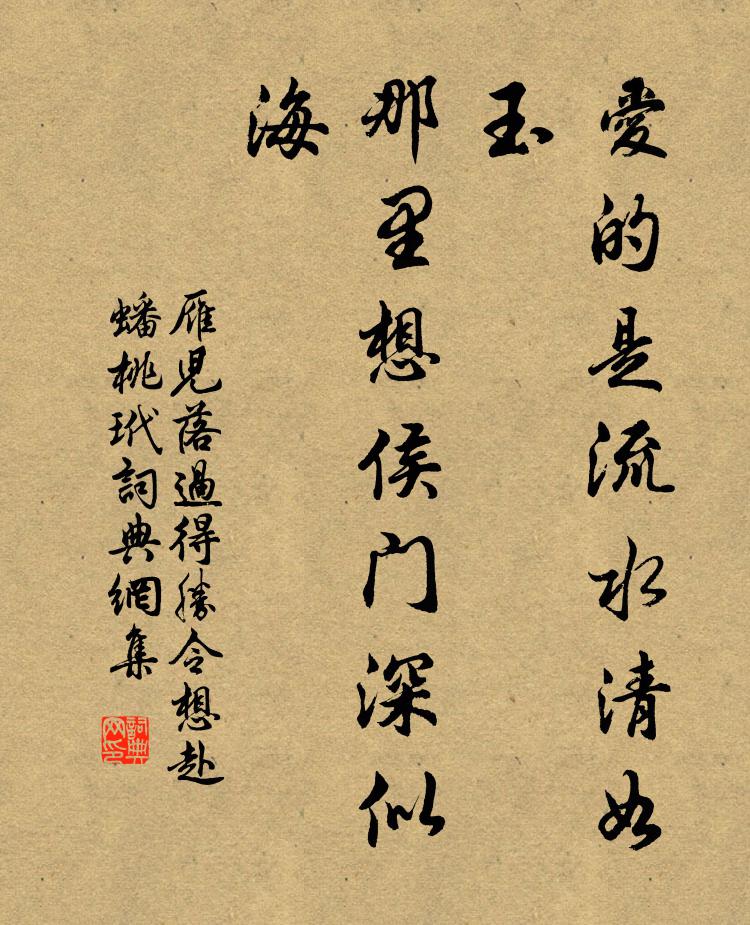 愛的是流水清如
玉
那里想侯门深似
海
雁兒落過得勝令想赴
蟠桃玳詞典網集
詞典网印